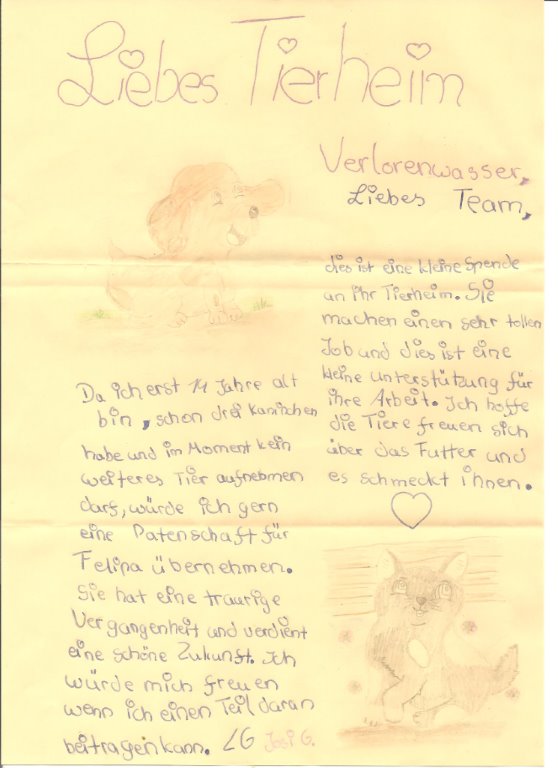 Liebes Tierheim
Verlorenwasser,
Liebes Team,
dies ist eine kleine Spende
an ihr Tierheim. Sie
machen einen sehr tollen
Job und dies ist eine
kleine unterstützung für
ihre Arbeit. Ich hoffe
die Tiere freuen sich
über das Futter und
es schmeckt ihnen.
Da ich erst 11 Jahre alt
bin, schon drei kaninchen
habe und im Moment kein
weiteres Tier aufnehmen
darf, würde ich gern
eine Patenschaft für
Felipa übernehmen.
Sie hat eine traurige
Vergangenheit und verdient
eine schöne Zukunft. Ich
würde mich freuen
wenn ich einen Teil daran
beitragen kann. LG Josi G.